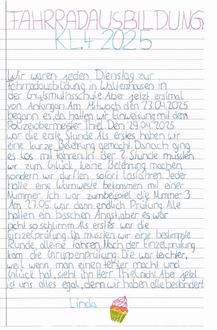 FAHRRADAUSBILDUNG
KL.4 2025
Wir waren jeden Dienstag zur
Fahrradausbildung in Waltershausen in
der Gutsmuthsschule. Aber jetzt erstmal
von Anfang an. Am Mittwoch den 23.04.2025
begann es, da hatten wir Einweisung mit dem
Polizeiobermeister Thiel. Den 29.04.2025
war die erste Stunde. Als erstes haben wir
eine kurze Belehrung gemacht. Danach ging
es los mit fahren. In der 2. Stunde mussten
wir zum Glück keine Belehrung machen,
sondern wir durften sofort losfahren. Jeder
hatte eine Warnweste bekommen mit einer
Nummer. Ich war zum beispiel die Nummer 3.
Am 27.05. war dann endlich Prüfung. Alle
hatten ein bisschen Angst, aber es war
nicht so schlimm. Als erstes war die
Einzelprüfung. Da mussten wir eine bestimmte
Runde alleine fahren. Nach der Einzelprüfung
kam die Gruppenprüfung. Die war leichter,
weil wenn man einen fehler macht und
Glück hat, sieht in Herr Thiel nicht. Aber jetzt
ist uns alles egal, denn wir haben alle bestanden!
Linda